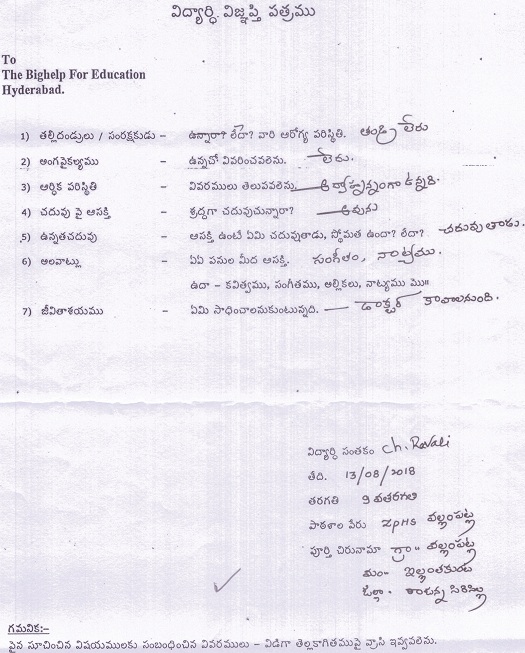 విద్యార్థి విజ్ఞప్తి పత్రము
To
The Bighelp For Education
Hyderabad.
1) తల్లిదండ్రులు / సంరక్షకుడు – ఉన్నారా? లేదా? వారి ఆరోగ్య పరిస్థితి. తండ్రి లేరు
2) అంగవైకల్యము – ఉన్నచో వివరించవలెను. లేదు.
3) ఆర్థిక పరిస్థితి – వివరములు తెలుపవలెను
4) చదువు పై ఆసక్తి – శ్రద్ధగా చదువుచున్నారా? అవును
5) ఉన్నతచదువు – ఆసక్తి ఉంటే ఏమి చదువుతాడు, స్థోమత ఉందా? లేదా? చదువుతారు.
6) అలవాట్లు – ఏఏ పనుల మీద ఆసక్తి. సంగీతం, నాట్యము.
ఉదా – కవిత్వము, సంగీతము, అల్లికలు, నాట్యము మొ॥
7) జీవితాశయము – ఏమి సాధించాలనుకుంటున్నది. డాక్టర్ కావాలనుంది.
విద్యార్థి సంతకం Ch. Ravali
తేది. 13/08/2018
తరగతి 9 వతరగతి
పాఠశాల పేరు ZPHS వల్లంపట్ల
పూర్తి చిరునామా గ్రా" వల్లంపట్ల
మం- ఇల్లంతకుంట
జిల్లా- రాజన్న సిరిసిల్ల
గమనిక:–
పైన సూచించిన విషయములకు సంబంధించిన వివరములు – విడిగా తెల్లకాగితముపై వ్రాసి ఇవ్వవలెను.